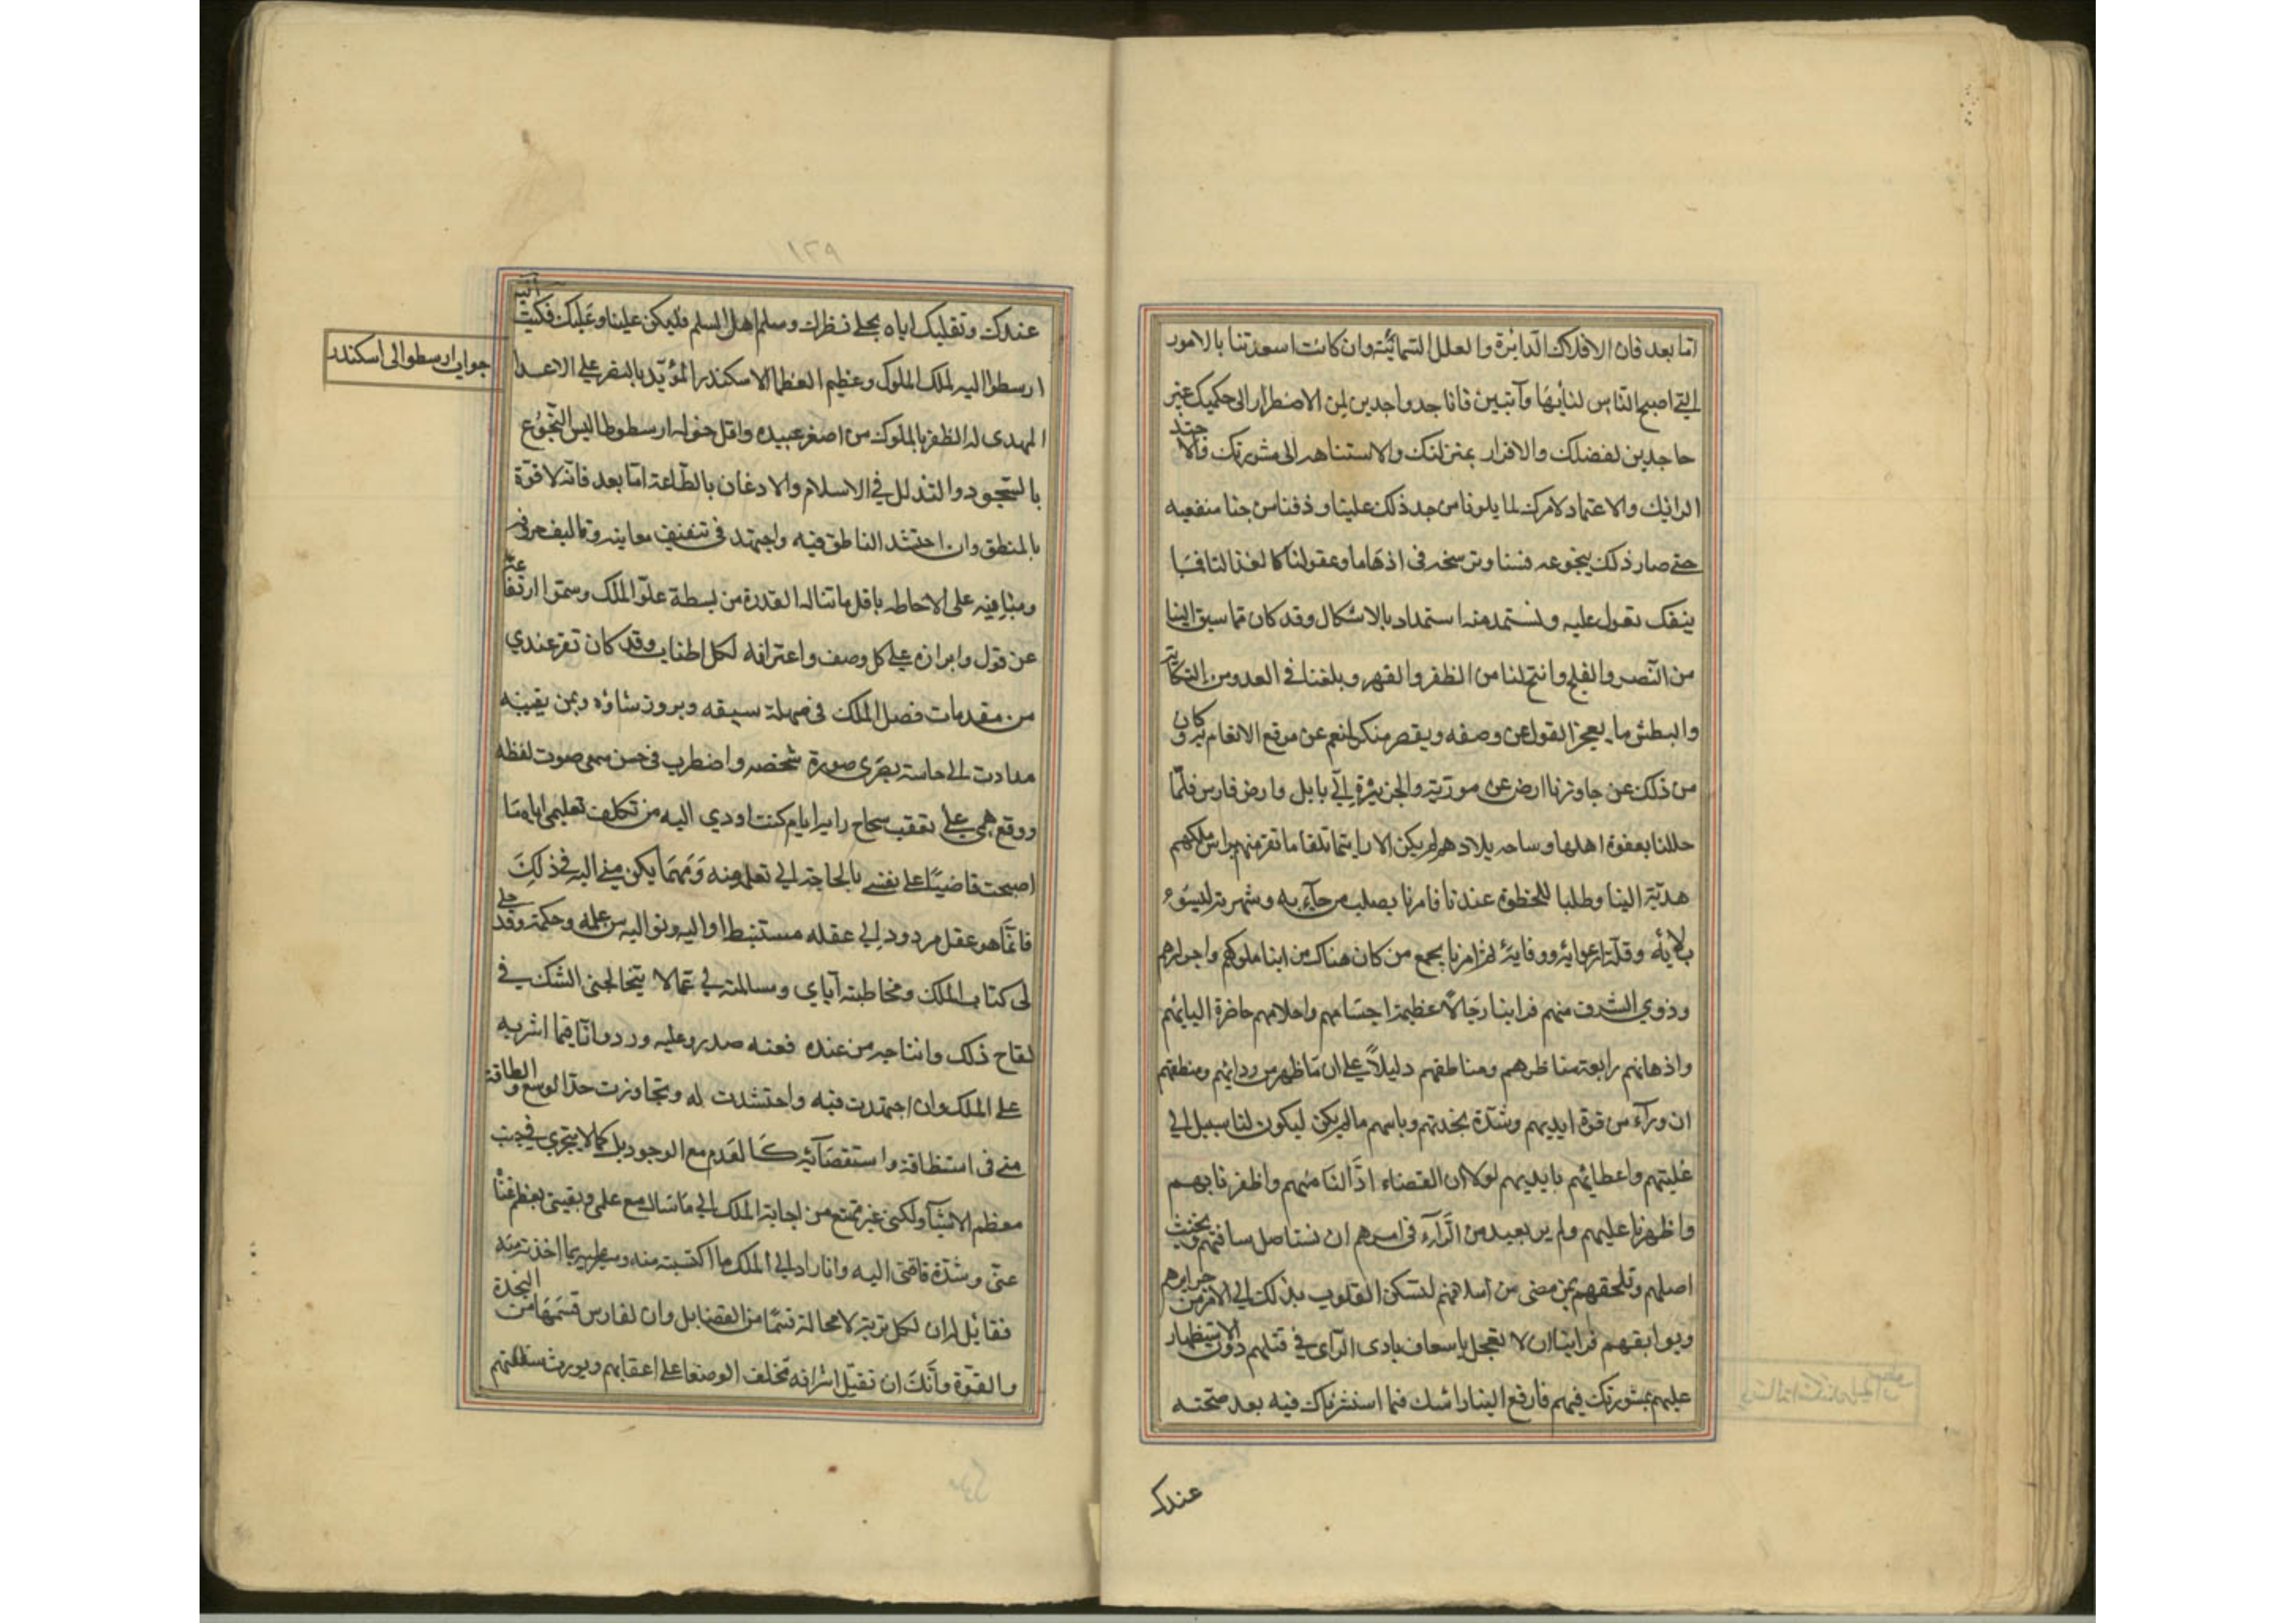 اما بعد فان الافلاك الدايرة والعلل السمائية وان كانت اسعدتنا بالامور
التي اصبح الناس لنا بها دآئبين فانا جد واجدين لمن الاضطرار الى حكمك غير
جاحدين لفضلك والاقرار بمنزلتك والاستنامه الى مشورتك والاقتد
الرائيك والاعتماد لامرك لما بلونا من جد ذلك علينا وذقنا من جنا منفعه
حتى صار ذلك بنجوعه فينا وترسخه فى اذهاننا وعقولنا كالغذا لنا فما
ينفك نعول عليه ونستمد منه استمداد بالاشكال وقد كان مما سبق الينا
من النصر والفلج وانتج لنا من الظفر والقهر وبلغنا فى العدو من النكاية
والبطش ما يعجز القول عن وصفه ويقصر منكر المنعم عن موقع الانعام به وكان
من ذلك عن جاوزنا ارض عن سورية والجزيرة الي بابل وارض فارس فلما
حللنا بعفوة اهلها وساحه بلادهم لم يكن الا ريثما تلقانا نفر منهم براس ملكهم
هدية الينا وطلبا للحظوة عندنا فامرنا بصلب من جآء به وشهرته لسوء
بلائه وقلة ارعوائه ووفايه ثم امرنا بجمع من كان هناك من ابنا ملوكهم واحرارهم
وذوي الشرف منهم فراينا رجالا عظيمة اجسامهم واحلامهم حاضرة البابهم
واذهانهم رايعة مناظرهم ومناطقهم دليلاً على ان ما ظهر من روائهم ومنطقهم
ان ورآءه من قوة ايديهم وشدة نجدتهم وباسهم مالم يكن ليكون لنا سبيل الي
غلبتهم واعطائهم بايديهم لولا ان القضاء ادالنا منهم واظفرنا بهم
واظهرنا عليهم ولم ير بعيد من الرآء فى امرهم ان نستاصل شافتهم ونجتث
اصلهم ونلحقهم بمن مضى من اسلافهم لتسكن القلوب بذلك الي الامن من جرايرهم
وبوايقهم فراينا ان لا تعجل باسعاف بادى الرآي في قتلهم دون الاستظهار
عليهم بمشورتك فيهم فارفع الينا رائك فيما استشرناك فيه بعد صحته
عندك
١٢٩
عندك وتقليبك اياه بجلى نظرك وسلم اهل السلم فليكن علينا وعليك فكتب اليه
جواب ارسطو الى اسكندر
ارسطو اليه لملك الملوك وعظيم العظما الاسكندر المؤيد بالنصر على الاعدا
المهدى له الظفر بالملوك من اصغر عبيده واقل خوله ارسطوطاليس البخوع
بالسجود والتذلل في الاسلام والاذعان بالطاعة اما بعد فانه لا قوة
بالمنطق وان احتشد الناطق فيه واجتهد فى تثقيف معاينه وتاليف حروفه
ومبانيه على الاحاطه باقل ما تناله القدرة من بسطة علو الملك وسمو ارتفاعه
عن قول وابرازه على كل وصف واعترافه لكل اطناب وقد كان تقرر عندي
من مقدمات فضل الملك في صهلة سبقه وبروز شاؤه ويمن نقيبته
مذ ادت الي حاسة بصري صورة شخصه واضطرب فى حسن سمعى صوت لفظه
ووقع وهمى على تعقب نجاح رايه ايام كنت اودي اليه من تكلف تعليمى اياه ما
اصبحت قاضيًا على نفسي بالحاجة الي تعلمه منه ومهما يكن مني اليه في ذلك
فانما هو عقل مردود الي عقله مستنبطا اواليه وتواليه من علمه وحكمته وقد جلى
لى كتاب الملك ومخاطبته آياي ومسالمته لي عما لا يتخالجنى الشك في
لقاح ذلك وانتاجه من عنده فعنه صدر وعليه ورد وانا فيما اشر به
على الملك وان اجتهدت فيه واحتشدت له وتجاوزت حد الوسع والطاقة
منى فى استنظافه واستقصائه كالعدم مع الوجود بل كما لا يتجزي في جنب
معظم الاشيآ ولكنى غير ممتنع من اجابة الملك الي ما سال مع علمى ويقينى بعظم غناه
عنى وشدة فاقتى اليه وانا راد الي الملك ما اكتسبته منه ومشير بما اخذته منه
فقايل له ان لكل تربة لا محالة قسمًا من الفضايل وان لفارس قسمها من النجدة
والقوة وأنك ان تقتل اشرافه تخلف الوضعا على اعقابهم وتورث سفلتهم